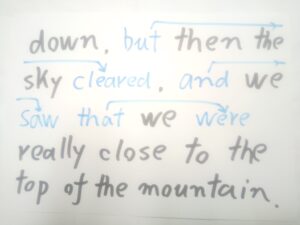 down, but then the
sky cleared, and we
saw that we were
really close to the
top of the mountain.